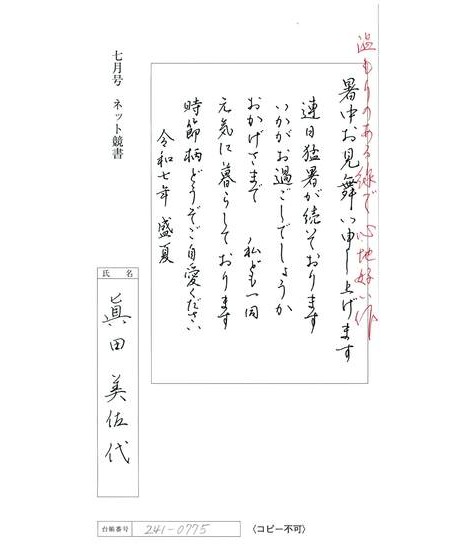 温もりのある線で心地好い作
暑中お見舞い申し上げます
連日猛暑が続いております
いかがお過ごしでしょうか
おかげさまで 私ども一同
元気に暮らしております
時節柄どうぞご自愛ください
令和七年 盛夏
七月号 ネット競書
氏名
眞田 美佐代
台帳番号 241-0775
〈コピー不可〉